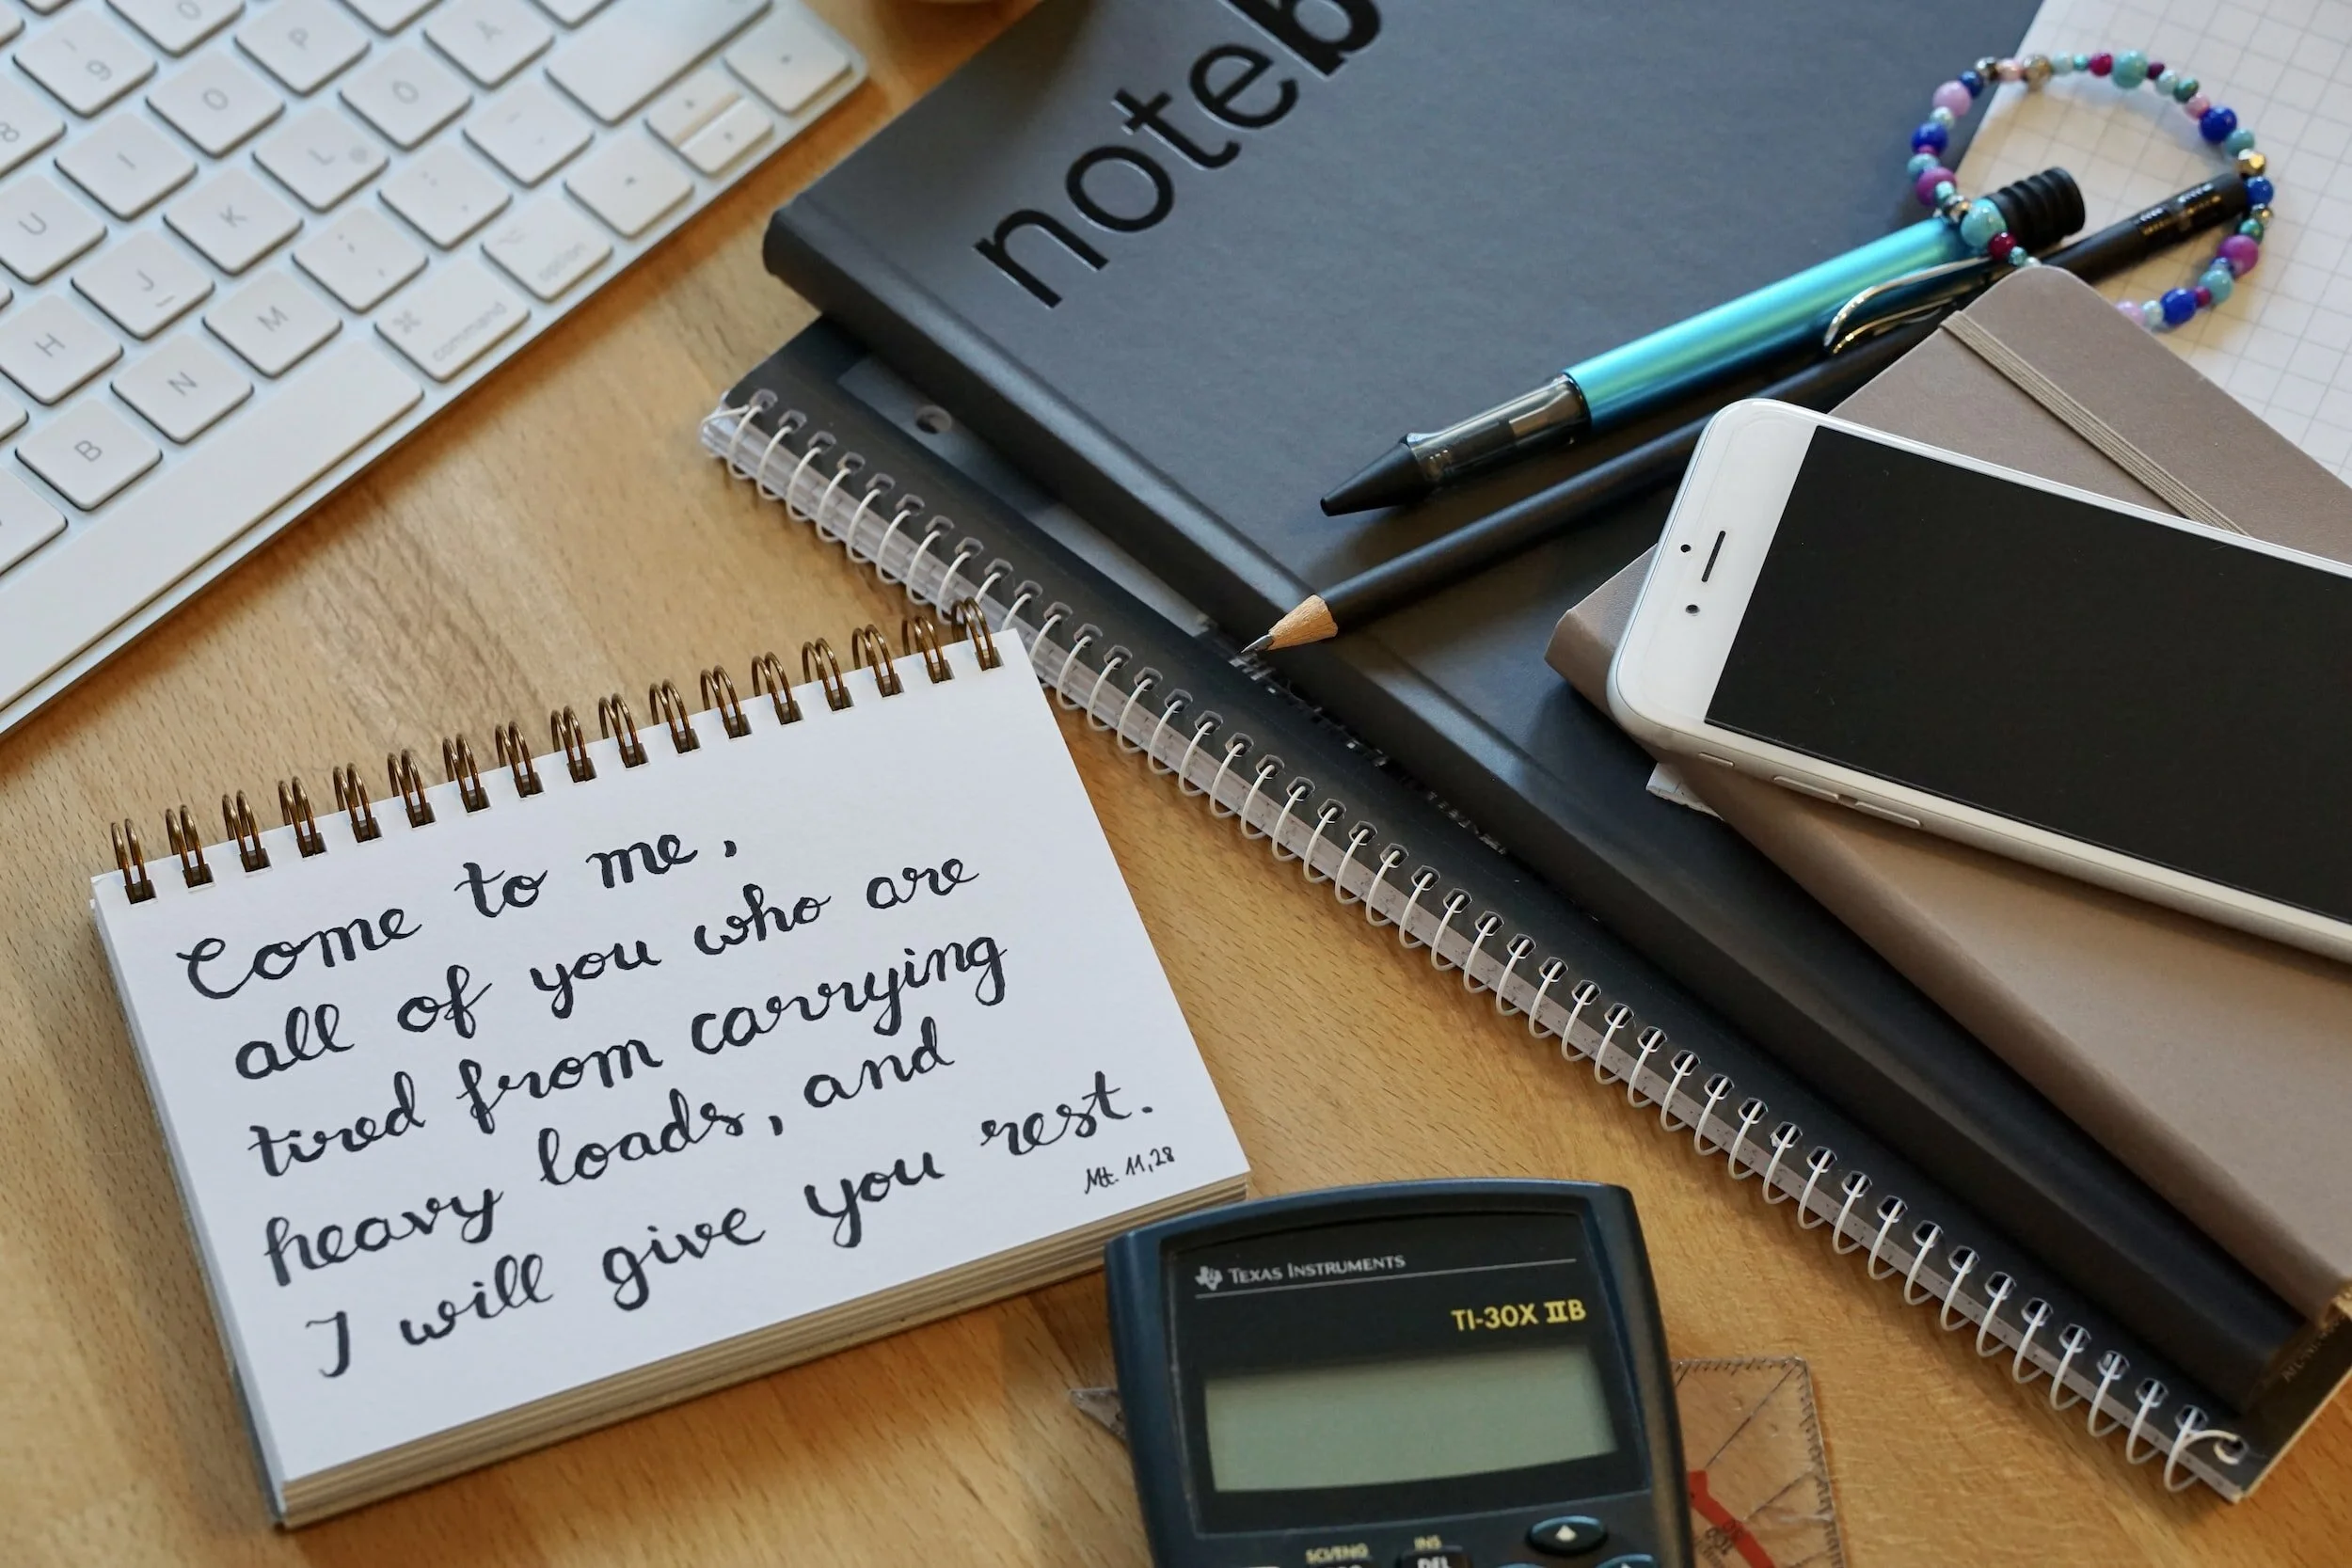 9
O
P
Å
8
I
O
Ö
U
K
L
J
H
M
N
B
option
command
noteb
Come to me,
all of you who are
tired from carrying
heavy loads, and
I will give you rest.
Mt. 11,28
TEXAS INSTRUMENTS
TI-30X IIB
SCI/ENG
INS
DEL